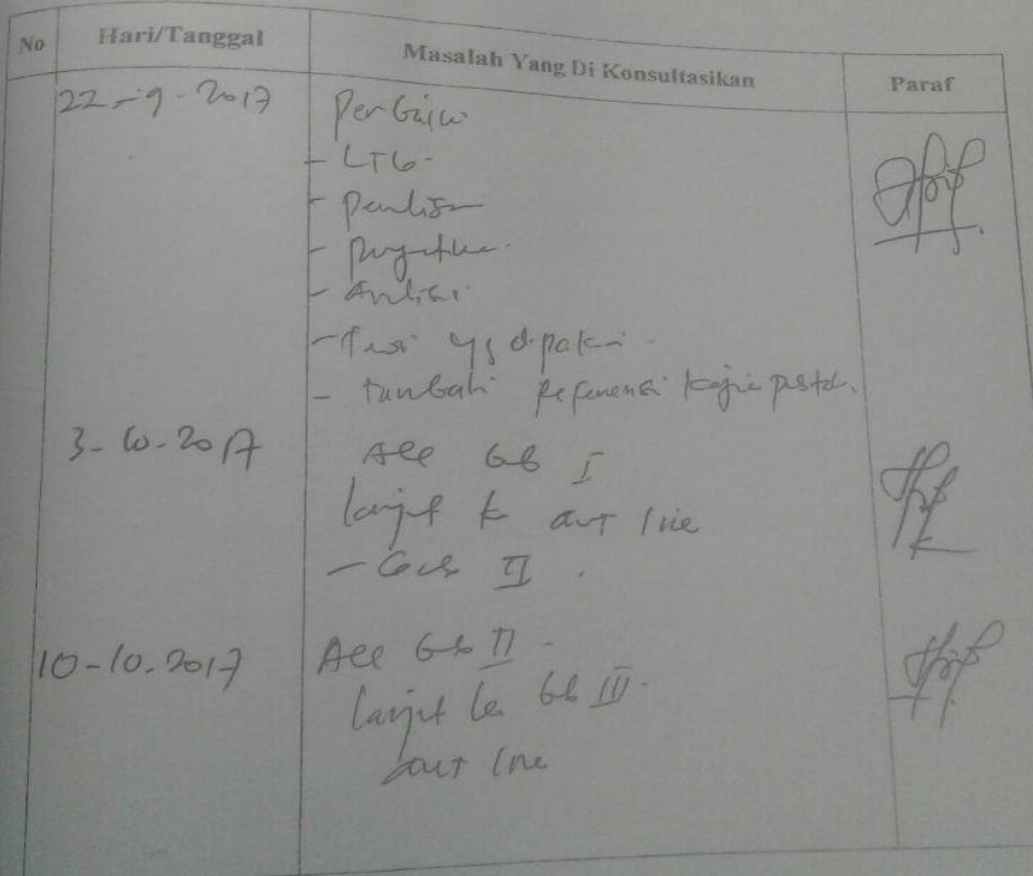 No Hari/Tanggal Masalah Yang Di Konsultasikan Paraf
22-9-2017 Perbaiki
- LTB-
- Penulisan
- 
- Analisi
- Teori yg dipakai -
- tambah Referensi kajian pustak.
3-10-2017 Acc bab I
lanjut ke out line
- bab II .
10-10-2017 Acc bab II -
lanjut ke bab III -
out line